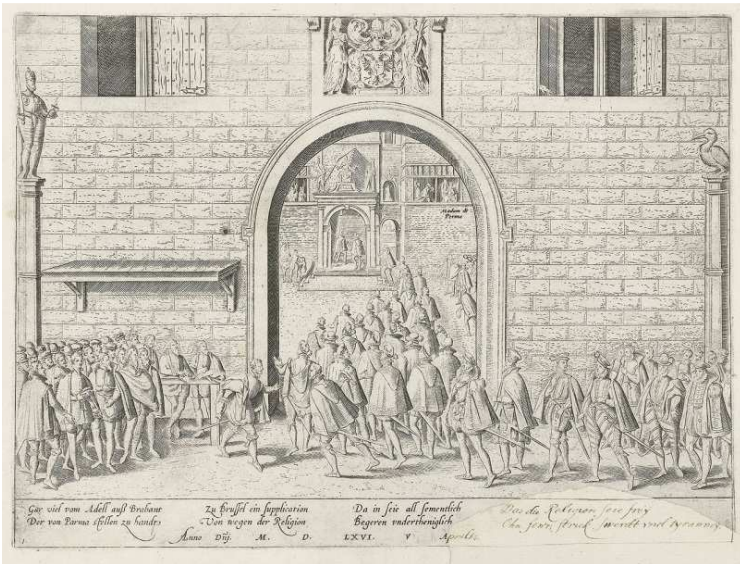 Madam de
Parma
Gar viel vom Adell auß Brabant
Der von Parma stellen zu handts
Zu Brussel ein supplication
Von wegen der Religion
Da in seie all sementlich
Begeren vnderthenglich
Das die Religion seie frÿ
Ohn jenn struck vnd tyranney
Anno Dnj. M. D. LXVI. V Aprilis.
1